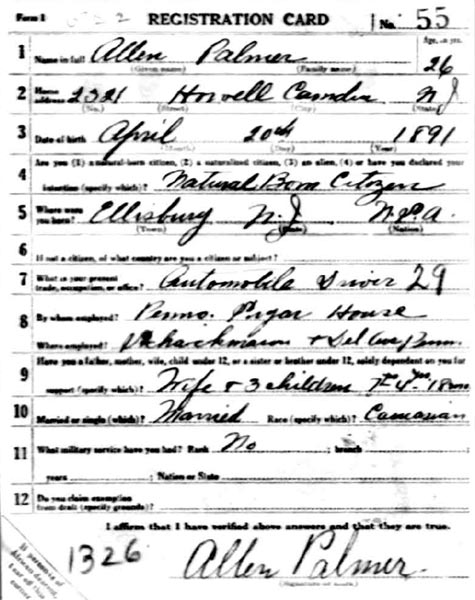 Form 1 REGISTRATION CARD No. 55
1 Name in full Allen Palmer Age, in yrs. 26
(Given name) (Family name)
2 Home address 2321 Howell Camden N J
(No.) (Street) (City) (State)
3 Date of birth April 20th 1891
(Month) (Day) (Year)
Are you (1) a natural-born citizen, (2) a naturalized citizen, (3) an alien, (4) or have you declared your
4 intention (specify which)? Natural Born Citizen
5 Where were you born? Ellisburg N.J
(Town) (State) (Nation)
6 If not a citizen, of what country are you a citizen or subject?
7 What is your present trade, occupation, or office? Automobile Driver 29
8 By whom employed? Penna. House
Where employed? + Del Ave
Have you a father, mother, wife, child under 12, or a sister or brother under 12, solely dependent on you for
9 support (specify which)? Wife + 3 children
10 Married or single (which)? Married Race (specify which)? Caucasian
11 What military service have you had? Rank No ; branch
years ; Nation or State
12 Do you claim exemption from draft (specify grounds)?
I affirm that I have verified above answers and that they are true.
1326 Allen Palmer.
If person is of African descent, tear off this corner